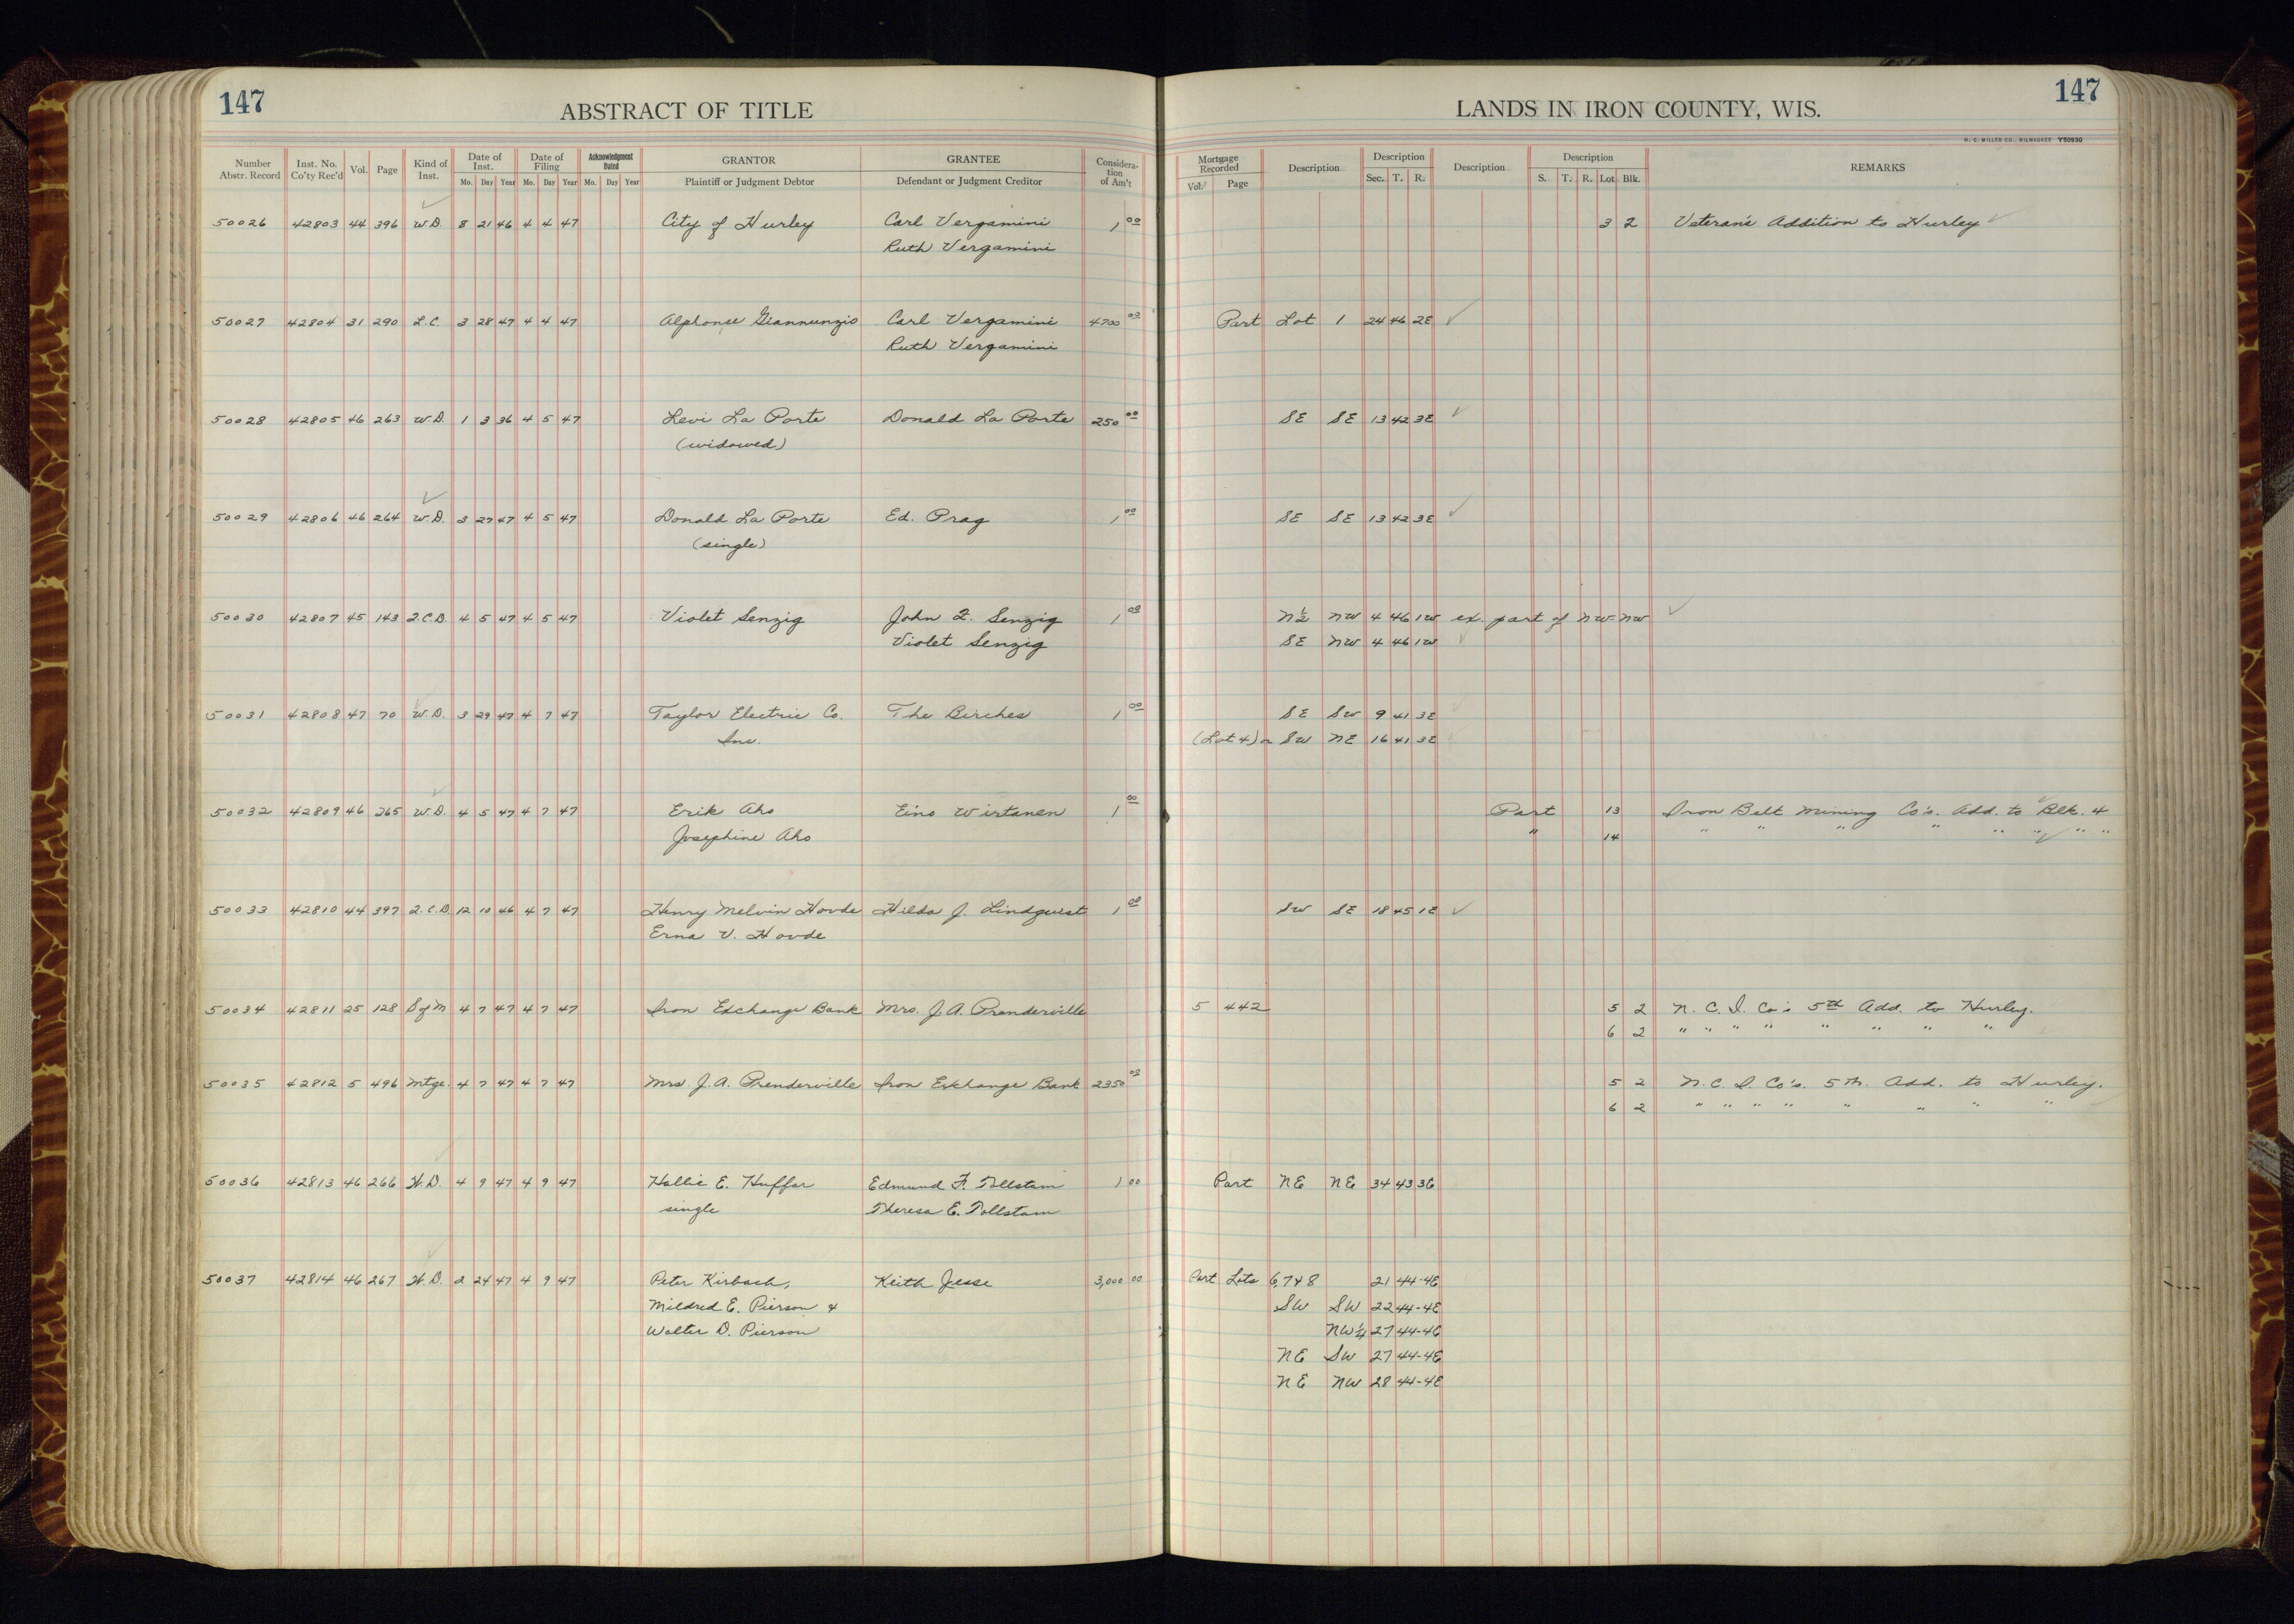 147 ABSTRACT OF TITLE LANDS IN IRON COUNTY, WIS. 147
H. C. MILLER CO., MILWAUKEE Y50930
Number Abstr. Record Inst. No. Co'ty Rec'd Vol. Page Kind of Inst. Date of Inst. Mo. Day Year Date of Filing Mo. Day Year Acknowledgment Dated Mo. Day Year GRANTOR Plaintiff or Judgment Debtor GRANTEE Defendant or Judgment Creditor Considera-tion of Am't Mortgage Recorded Vol. Page Description Description Sec. T. R. Description Description S. T. R. Lot Blk. REMARKS
50026 42803 44 396 W.D. 8 21 46 4 4 47 City of Hurley Carl Vergamini 1 00 3 2 Veteran's Addition to Hurley
Ruth Vergamini
50027 42804 31 290 L.C. 3 28 47 4 4 47 Alphonse Giannunzio Carl Vergamini 4700 00 Part Lot 1 24 46 2E
Ruth Vergamini
50028 42805 46 263 W.D. 1 3 36 4 5 47 Levi La Porte Donald La Porte 250 00 SE SE 13 42 3E
(widowed)
50029 42806 46 264 W.D. 3 27 47 4 5 47 Donald La Porte Ed. Prag 1 00 SE SE 13 42 3E
(single)
50030 42807 45 143 Q.C.D. 4 5 47 4 5 47 Violet Senzig John F. Senzig 1 00 N½ NW 4 46 1W ex. part of NW-NW
Violet Senzig SE NW 4 46 1W
50031 42808 47 70 W.D. 3 29 47 4 7 47 Taylor Electric Co. The Birches 1 00 SE SW 9 41 3E
Inc. (Lot 4) or SW NE 16 41 3E
50032 42809 46 265 W.D. 4 5 47 4 7 47 Erik Aho Eino Wirtanen 1 00 Part 13 Iron Belt Mining Co's. Add. to Blk. 4
Josephine Aho " 14 " " " " " " " "
50033 42810 44 397 Q.C.D. 12 10 46 4 7 47 Henry Melvin Hovde Hilda J. Lindquist 1 00 SW SE 18 45 1E
Erna V. Hovde
50034 42811 25 128 S of M 4 7 47 4 7 47 Iron Exchange Bank Mrs. J. A. Prenderville 5 442 5 2 N. C. I. Co's 5th Add. to Hurley.
6 2 " " " " " " " "
50035 42812 5 496 Mtge. 4 7 47 4 7 47 Mrs. J. A. Prenderville Iron Exchange Bank 2350 00 5 2 N. C. I. Co's. 5th. Add. to Hurley.
6 2 " " " " " " " "
50036 42813 46 266 W.D. 4 9 47 4 9 47 Hallie E. Huffar Edmund F. Tollstam 1 00 Part NE NE 34 43 3E
single Theresa E. Tollstam
50037 42814 46 267 W.D. 2 24 47 4 9 47 Peter Kirbach, Keith Jesse 3,000 00 Part Lots 6,7 & 8 21 44-4E
Mildred E. Pierson & SW SW 22 44-4E
Walter D. Pierson NW¼ 27 44-4E
NE SW 27 44-4E
NE NW 28 44-4E